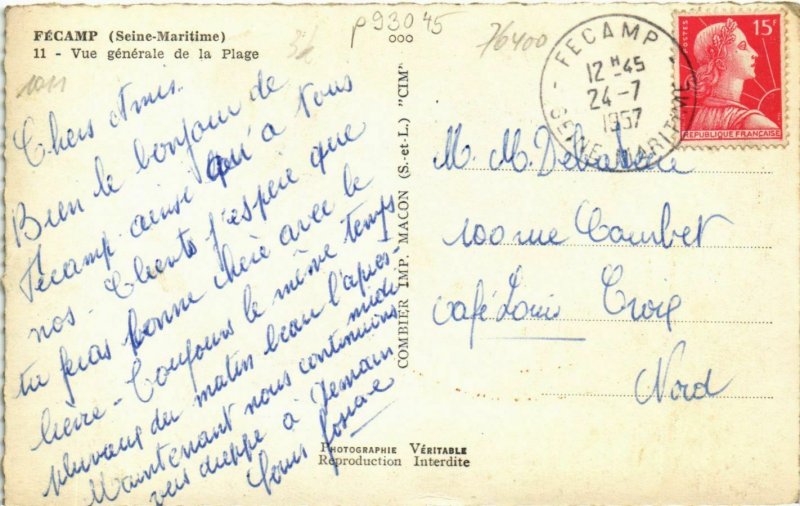 FÉCAMP (Seine-Maritime)
11 - Vue générale de la Plage
p93045
76400
FECAMP
12 H 45
24-7
1957
SEINE-MARITIME
POSTES
15F
REPUBLIQUE FRANÇAISE
Chers Amis.
Bien le bonjour de
Fécamp. ainsi qu'à tous
nos. Clients j'espère que
tu feras bonne chère avec le
- Toujours le même temps
pluvaux du matin beau l'après
midi
Maintenant nous continuons
vers dieppe à Demain
Louis
COMBIER IMP. MACON (S.-et-L.) "CIM"
M. M.
100 rue Combet
Café Louis Croix
Nord
PHOTOGRAPHIE VÉRITABLE
Reproduction Interdite